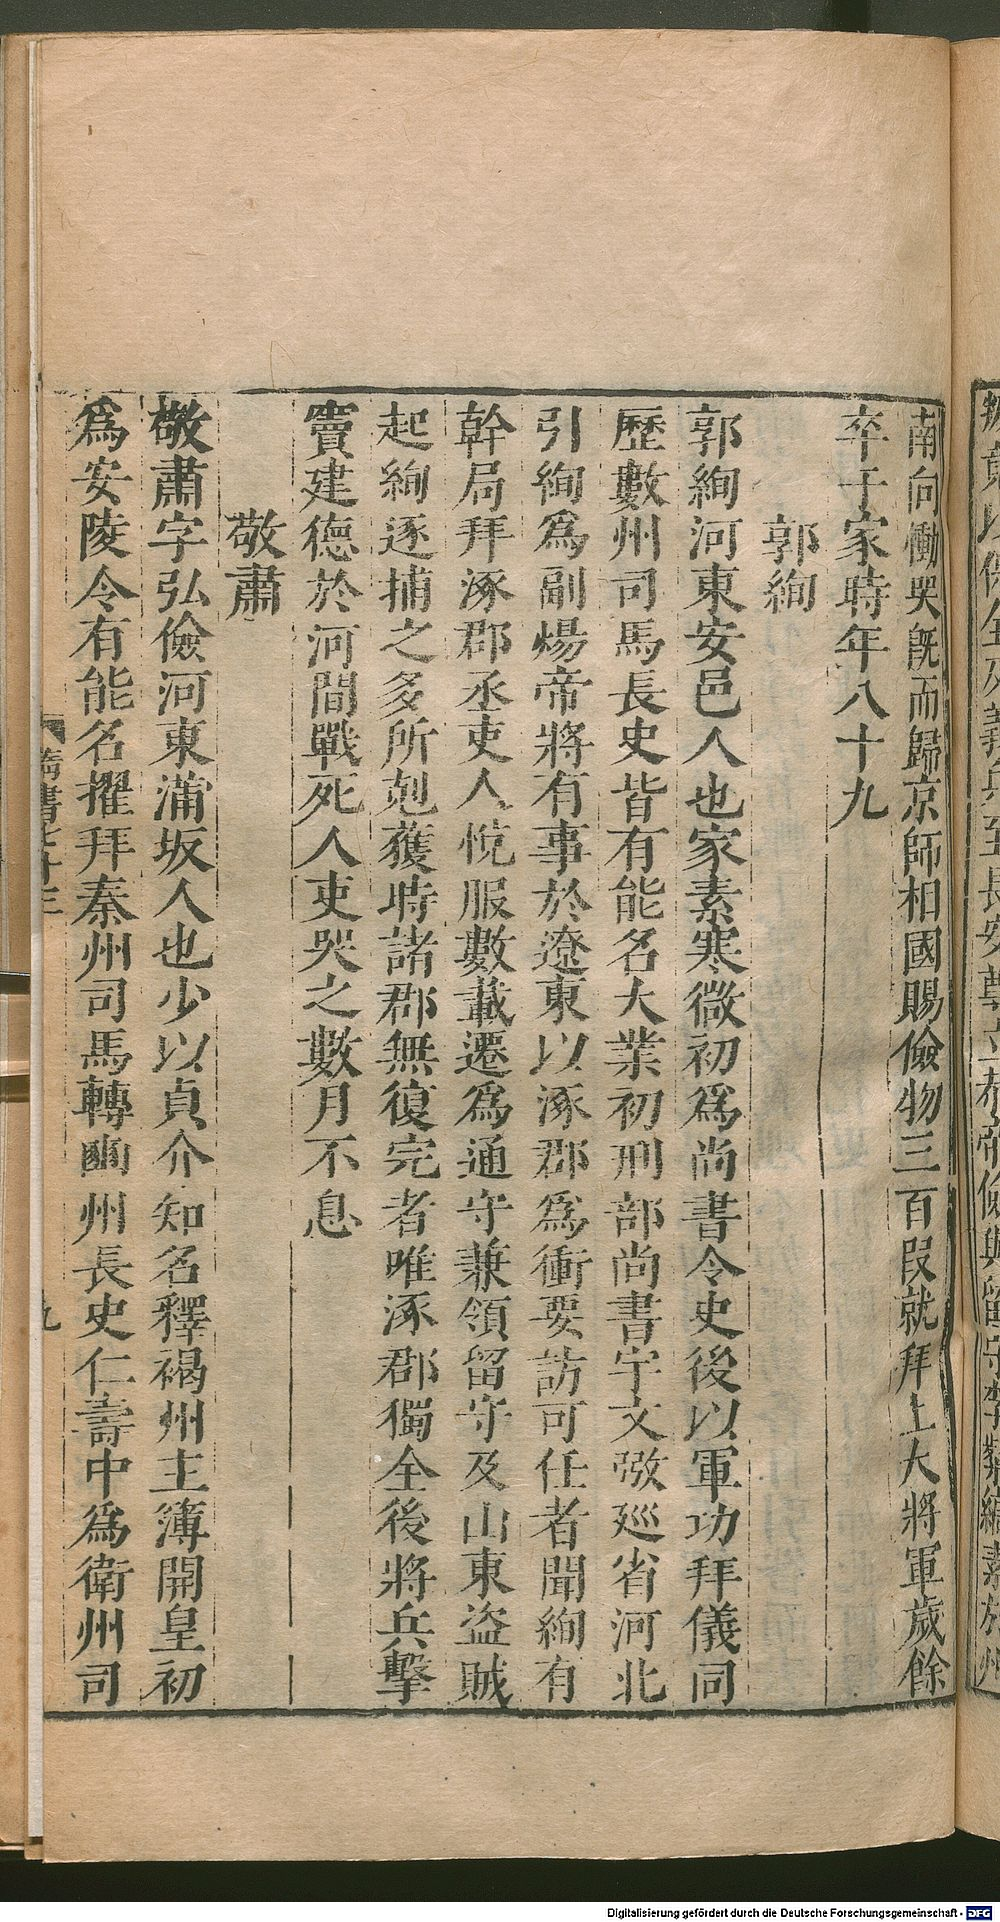 南向慟哭旣而歸京師相國賜儉物三百段就拜上大將軍歲餘
卒于家時年八十九
郭絢
郭絢河東安邑人也家素寒微初爲尚書令史後以軍功拜儀同
歷數州司馬長史皆有能名大業初刑部尚書宇文㢸廵省河北
引絢爲副煬帝將有事於遼東以涿郡爲衝要訪可任者聞絢有
幹局拜涿郡丞吏人悅服數載遷爲通守兼領留守及山東盗賊
起絢逐捕之多所剋獲時諸郡無復完者唯涿郡獨全後將兵擊
竇建德於河間戰死人吏哭之數月不息
敬肅
敬肅字弘儉河東蒲坂人也少以貞介知名釋褐州主簿開皇初
爲安陵令有能名擢拜秦州司馬轉豳州長史仁壽中爲衛州司
九
Digitalisierung gefördert durch die Deutsche Forschungsgemeinschaft - DFG